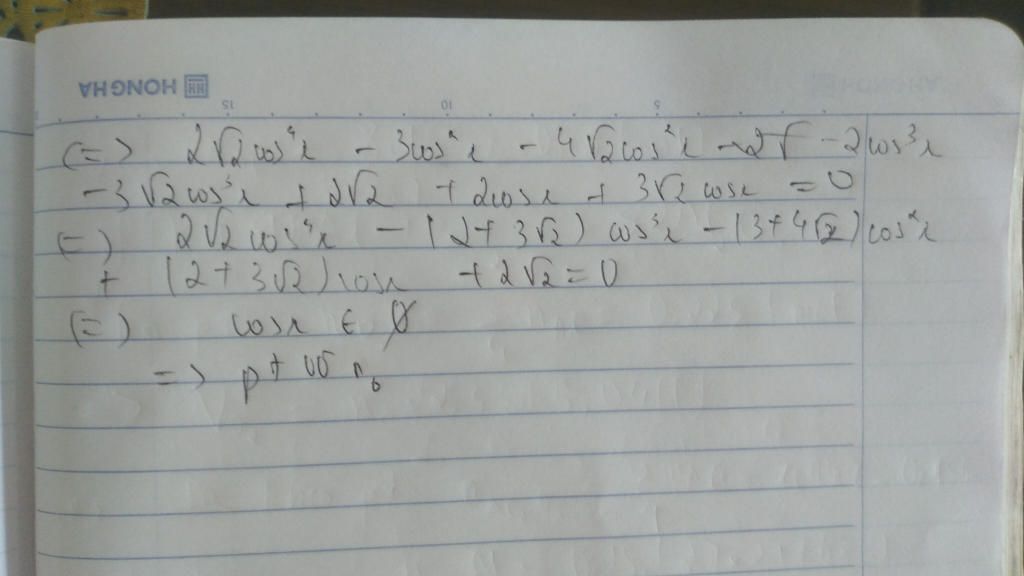 HONGHA
15 10 5
(=) 2√2cos⁴x - 3cos²x - 4√2cos²x - 2√ - 2cos³x
- 3√2cos³x + 2√2 + 2cosx + 3√2cosx = 0
(=) 2√2cos⁴x - (2+3√2) cos³x - (3+4√2)cos²x
+ (2+3√2)cosx + 2√2 = 0
(=) cosx ∈ ∅
=> pt vô n₀